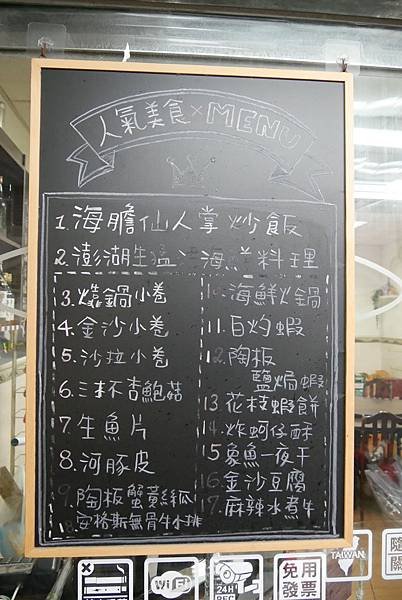 人氣美食×MENU
1.海膽仙人掌炒飯
2.澎湖生猛海鮮料理
3.燒鍋小卷
4.金沙小卷
5.沙拉小卷
6.三杯杏鮑菇
7.生魚片
8.河豚皮
9.陶板蟹黃絲瓜
安格斯無骨牛小排
10.海鮮火鍋
11.白灼蝦
12.陶板
鹽焗蝦
13.花枝蝦餅
14.炸蚵仔酥
15.象魚一夜干
16.金沙豆腐
17.麻辣水煮牛
WiFi
24H
REC
免用
發票
TAIWAN
隨
關